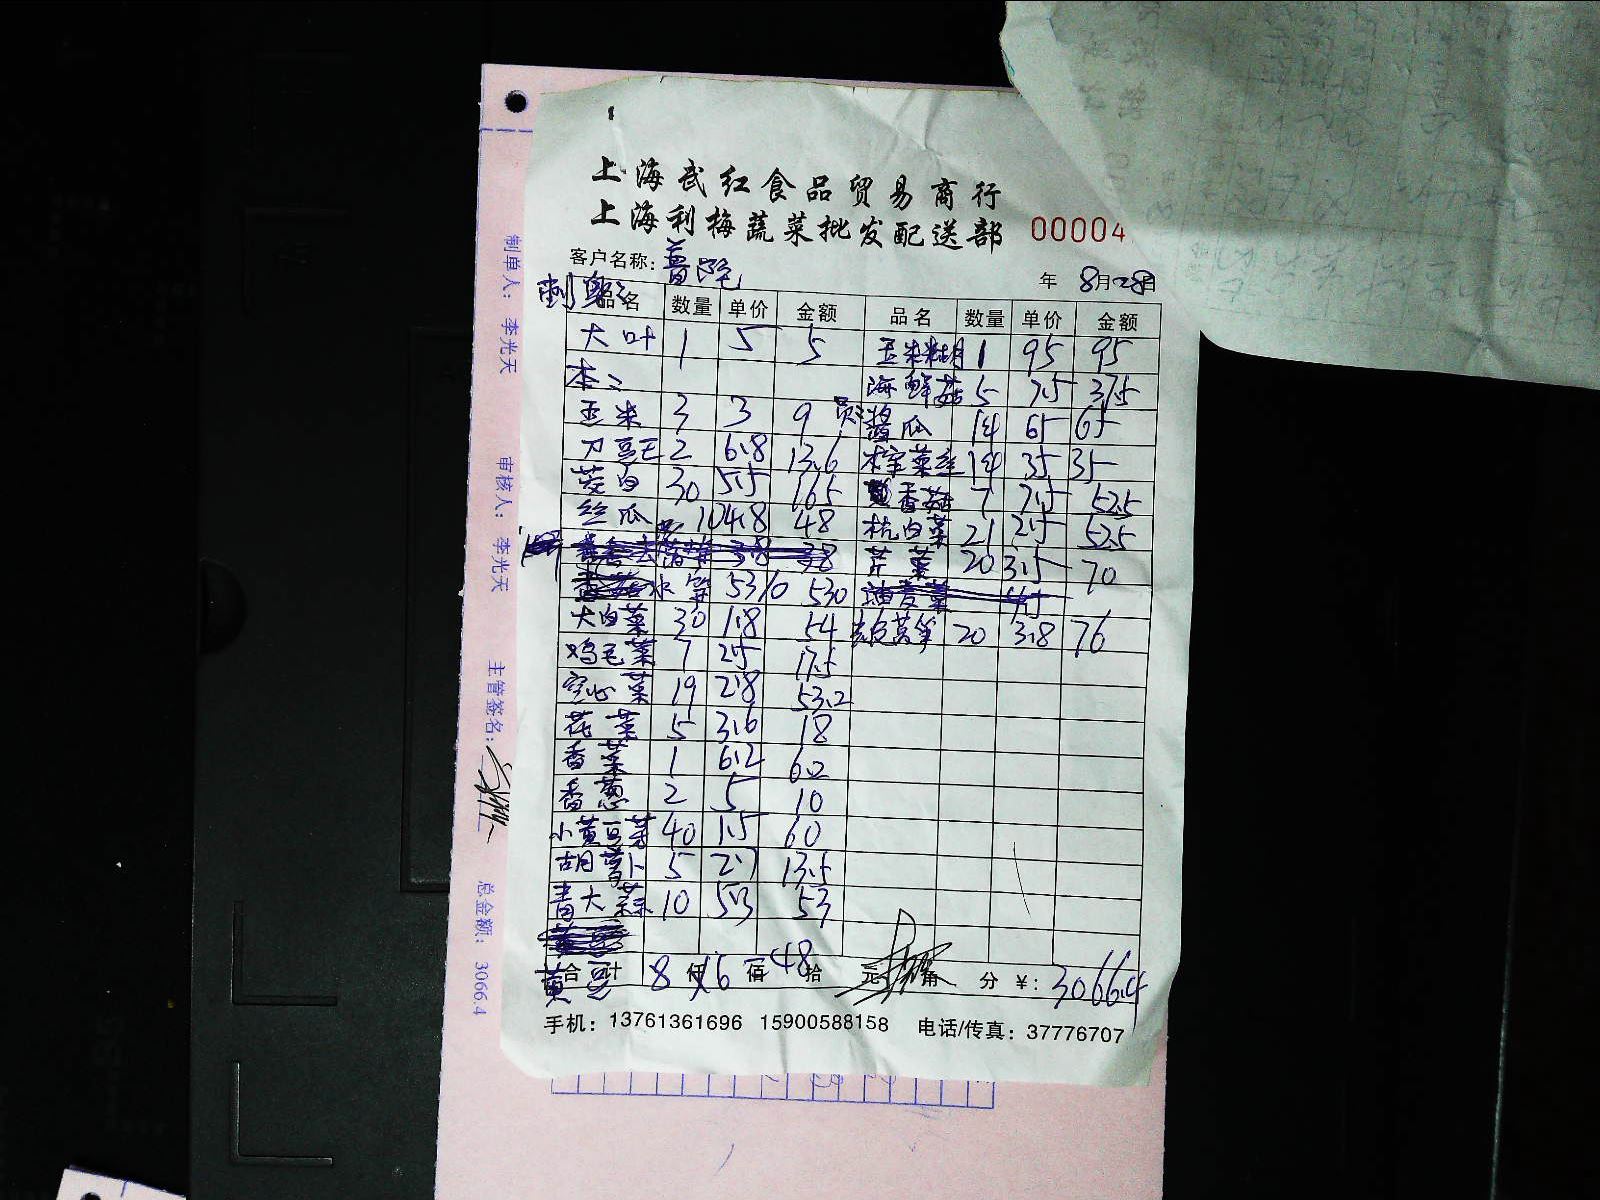 上海武红食品贸易商行
上海利梅蔬菜批发配送部 00004
客户名称: 年 8月28日
品名 数量 单价 金额 品名 数量 单价 金额
大叶 1 5 5 玉米糊 1 95 95
海鲜菇 5 7.5 37.5
玉米 3 3 9 酱瓜 14 65 65
刀豆 2 6.8 13.6 榨菜丝 14 35 35
茭白 30 5.5 165 香菇 7 7.5 52.5
丝瓜 10 4.8 48 杭白菜 21 2.5 52.5
3.8 38 芹菜 20 3.5 70
冰 53 10 530 油麦菜 4.5
大白菜 30 1.8 54 去皮莴笋 20 3.8 76
鸡毛菜 7 2.5 17.5
空心菜 19 2.8 53.2
花菜 5 3.6 18
香菜 1 6.2 6.2
香葱 2 5 10
小黄豆芽 40 1.5 60
胡萝卜 5 2.7 13.5
青大蒜 10 5.3 53
合计 仟 佰 拾 元 角 分 ¥: 3066.4
黄豆 8 6 48
手机: 13761361696 15900588158 电话/传真: 37776707
制单人: 李光天
审核人: 李光天
主管签名:
总金额: 3066.4